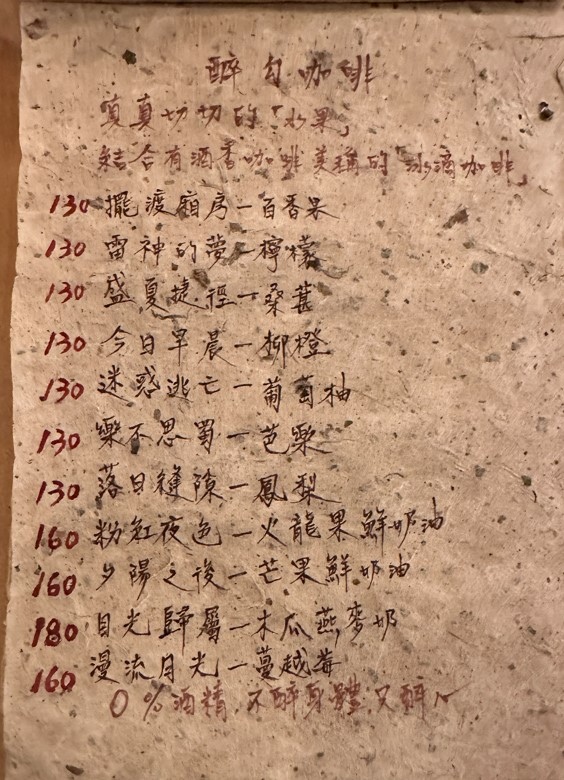 醉勾咖啡
真真切切的「水果」
結合有酒香咖啡美稱的「冰滴咖啡」
130 擺渡廂房—百香果
130 雷神的夢—檸檬
130 盛夏捷徑—桑葚
130 今日早晨—柳橙
130 迷惑逃亡—葡萄柚
130 樂不思蜀—芭樂
130 落日縫隙—鳳梨
160 粉紅夜色—火龍果鮮奶油
160 夕陽之後—芒果鮮奶油
180 目光歸屬—木瓜燕麥奶
160 漫流月光—蔓越莓
0%酒精,不醉身體,只醉心